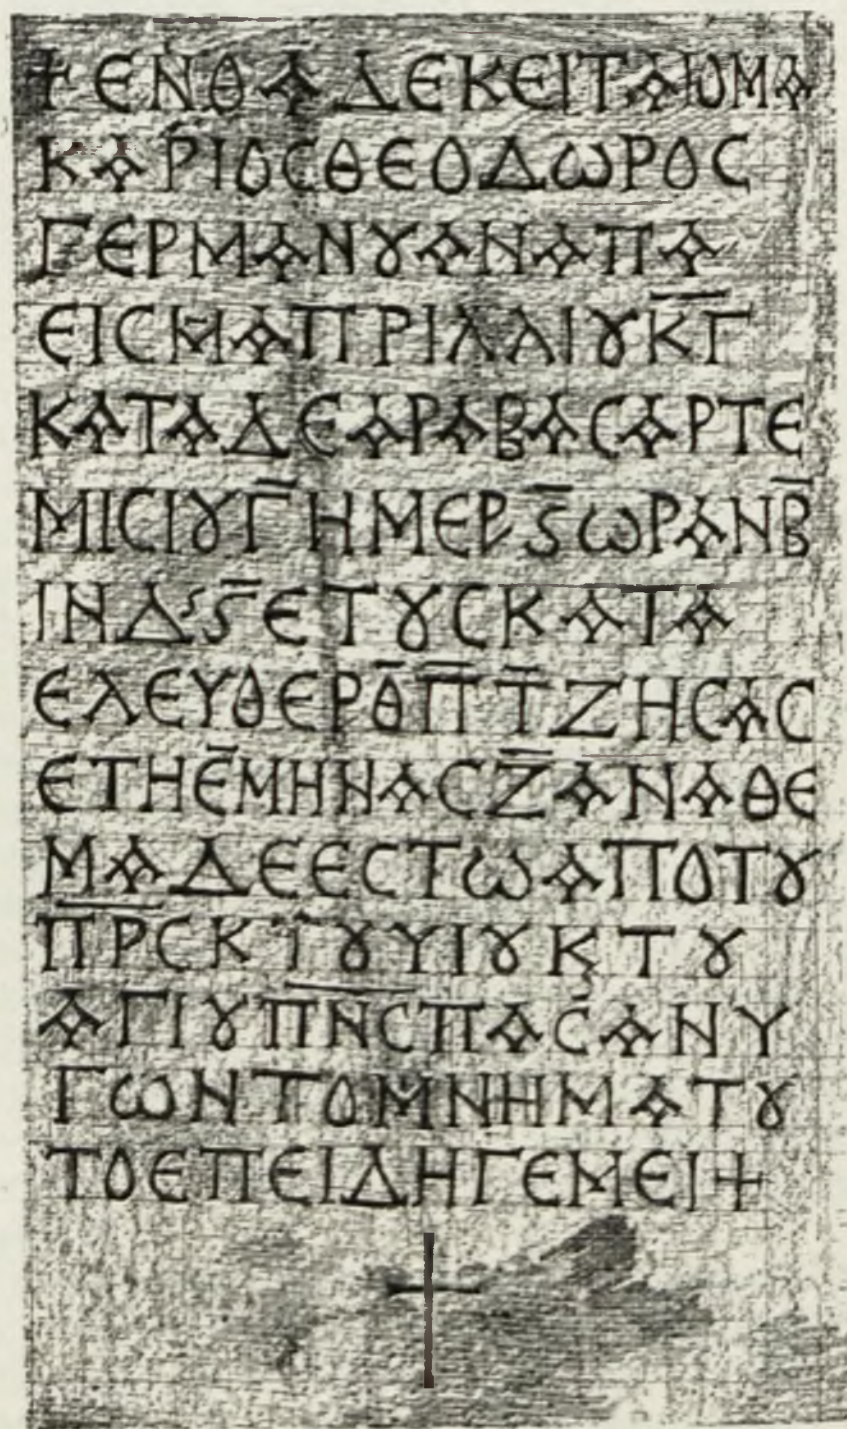 + ΕΝΘΑΔΕΚΕΙΤΑΙΟΜΑ
ΚΑΡΙΟCΘΕΟΔωΡΟC
ΓΕΡΜΑΝȣΑΝΑΠΑ
ΕΙCΜΑΠΡΙΛΛΙȣΚ̅Γ̅
ΚΑΤΑΔΕΑΡΑΒΑCΑΡΤΕ
ΜΙCΙȣΓ̅ΗΜΕΡϚ̅ωΡΑΝΒ̅
ΙΝΔSϚ̅ΕΤȣCΚΑΤΑ
ΕΛΕΥΘΕΡΘ̅Π̅Τ̅ΖΗCΑC
ΕΤΗΕ̅ΜΗΝΑCΖ̅ΑΝΑΘΕ
ΜΑΔΕΕCΤωΑΠΟΤȣ
Π̅Ρ̅CΚΤȣΥΙȣΚΤȣ
ΑΓΙȣΠ̅Ν̅C̅ΠΑC̅ΑΝΥ
ΓωΝΤΟΜΝΗΜΑΤȣ
ΤΟΕΠΕΙΔΗΓΕΜΕΙ +